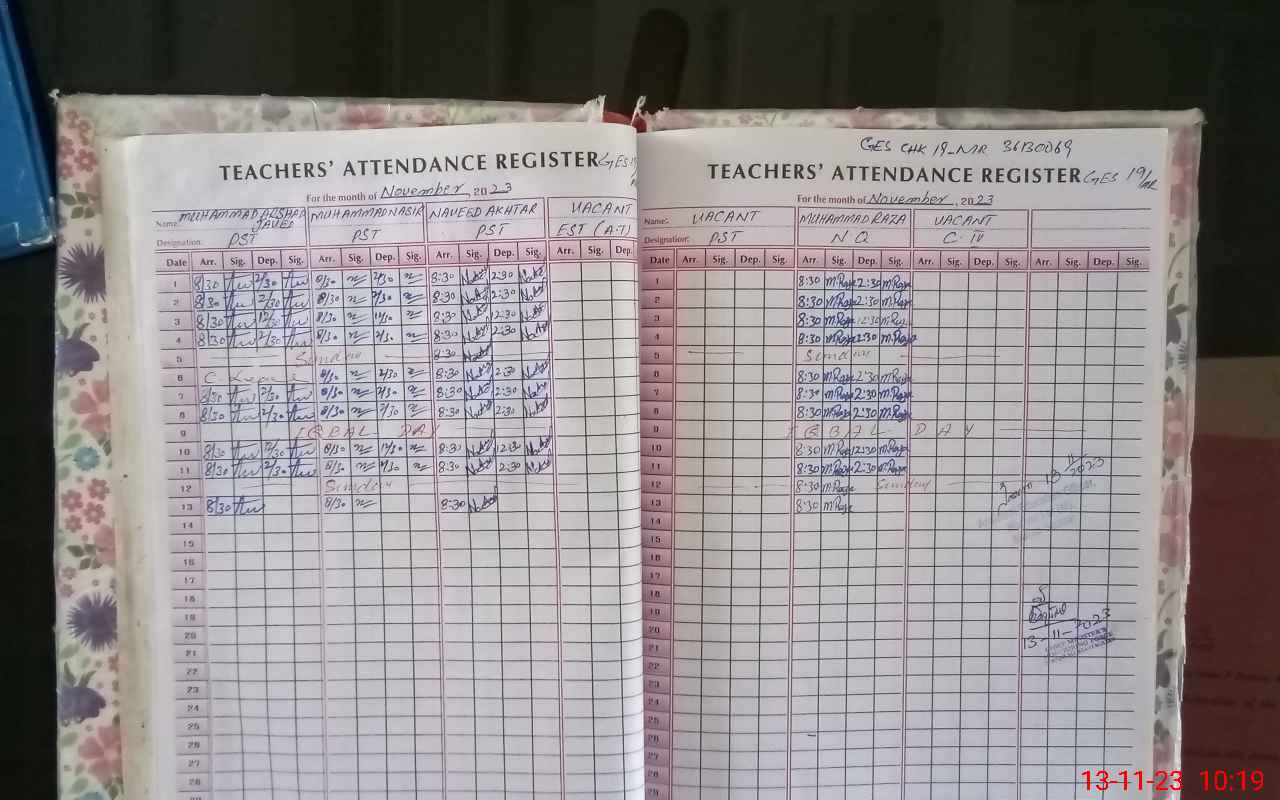 TEACHERS' ATTENDANCE REGISTER GES 19
For the month of November, 2023
Name: MUHAMMAD ARSHAD JAVED MUHAMMAD NASIR NAVEED AKHTAR VACANT
Designation: PST PST PST EST (A.T)
Date Arr. Sig. Dep. Sig. Arr. Sig. Dep. Sig. Arr. Sig. Dep. Sig. Arr. Sig. Dep.
1 8/30 2/30 8/30 2/30 8:30 2:30
2 8/30 2/30 8/30 2/30 8:30 2:30
3 8/30 12/30 8/30 12/30 8:30 12:30
4 8/30 2/30 8/30 2/30 8:30 2:30
5 Sunday 8:30
6 C Leave 8/30 2/30 8:30 2:30
7 8/30 2/30 8/30 2/30 8:30 2:30
8 8/30 2/30 8/30 2/30 8:30 2:30
9 IQBAL DAY
10 8/30 12/30 8/30 12/30 8:30 12:30
11 8/30 2/30 8/30 2/30 8:30 2:30
12 Sunday
13 8/30 8/30 8:30
14
15
16
17
18
19
20
21
22
23
24
25
26
27
28
GES CHK 19-N/R 36130069
TEACHERS' ATTENDANCE REGISTER GES 19/NR
For the month of November, 2023
Name: VACANT MUHAMMAD RAZA VACANT
Designation: PST N Q C-IV
Date Arr. Sig. Dep. Sig. Arr. Sig. Dep. Sig. Arr. Sig. Dep. Sig. Arr. Sig. Dep. Sig.
1 8:30 M.Raza 2:30 M.Raza
2 8:30 M.Raza 2:30 M.Raza
3 8:30 M.Raza 12:30 M.Raza
4 8:30 M.Raza 2:30 M.Raza
5 Sunday
6 8:30 M.Raza 2:30 M.Raza
7 8:30 M.Raza 2:30 M.Raza
8 8:30 M.Raza 2:30 M.Raza
9 IQBAL DAY
10 8:30 M.Raza 12:30 M.Raza
11 8:30 M.Raza 2:30 M.Raza
12 8:30 M.Raza Sunday
13 8:30 M.Raza
14
15
16
17
18
19
20
21
22
23
24
25
26
27
28
13 11/2023
13-11-2023
13-11-23 10:19